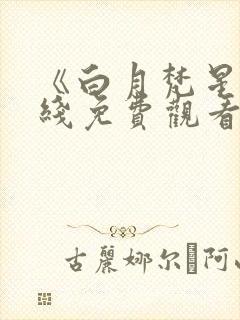 《白月梵星
綫免費觀看
古麗娜尔·阿